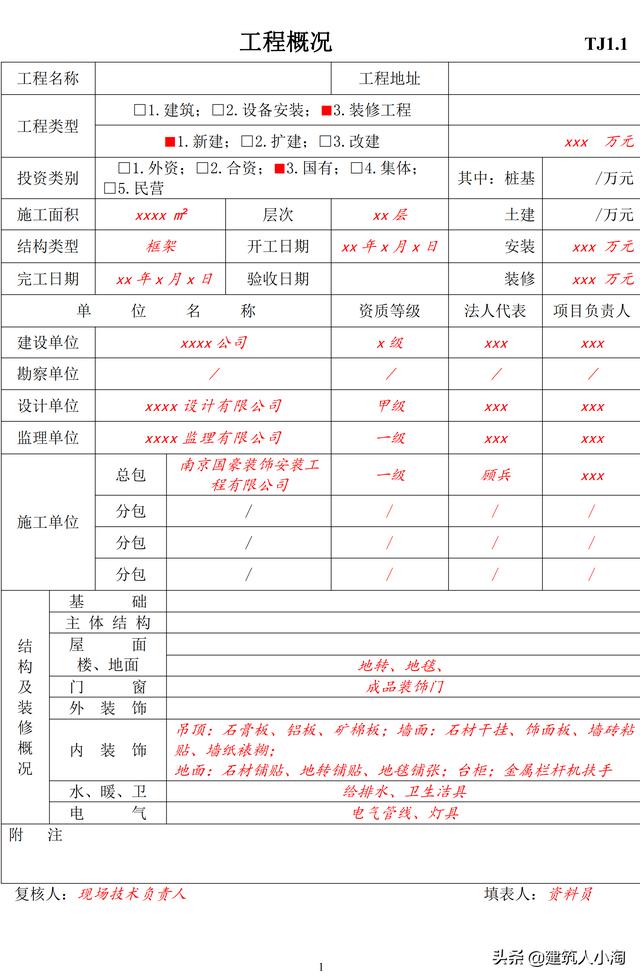 工程概况 TJ1.1
工程名称 工程地址
工程类型 □1.建筑；□2.设备安装；■3.装修工程
■1.新建；□2.扩建；□3.改建 xxx 万元
投资类别 □1.外资；□2.合资；■3.国有；□4.集体；
□5.民营 其中：桩基 /万元
施工面积 xxxx ㎡ 层次 xx 层 土建 /万元
结构类型 框架 开工日期 xx 年 x 月 x 日 安装 xxx 万元
完工日期 xx 年 x 月 x 日 验收日期 装修 xxx 万元
单 位 名 称 资质等级 法人代表 项目负责人
建设单位 xxxx 公司 x 级 xxx xxx
勘察单位 / / / /
设计单位 xxxx 设计有限公司 甲级 xxx xxx
监理单位 xxxx 监理有限公司 一级 xxx xxx
施工单位 总包 南京国豪装饰安装工
程有限公司 一级 顾兵 xxx
分包 / / / /
分包 / / / /
分包 / / / /
结构及装修概况 基 础
主 体 结 构
屋 面
楼、地面 地转、地毯、
门 窗 成品装饰门
外 装 饰
内 装 饰 吊顶：石膏板、铝板、矿棉板；墙面：石材干挂、饰面板、墙砖粘
贴、墙纸裱糊；
地面：石材铺贴、地转铺贴、地毯铺张；台柜；金属栏杆机扶手
水、暖、卫 给排水、卫生洁具
电 气 电气管线、灯具
附 注
复核人：现场技术负责人 填表人：资料员
1
头条 @建筑人小淘